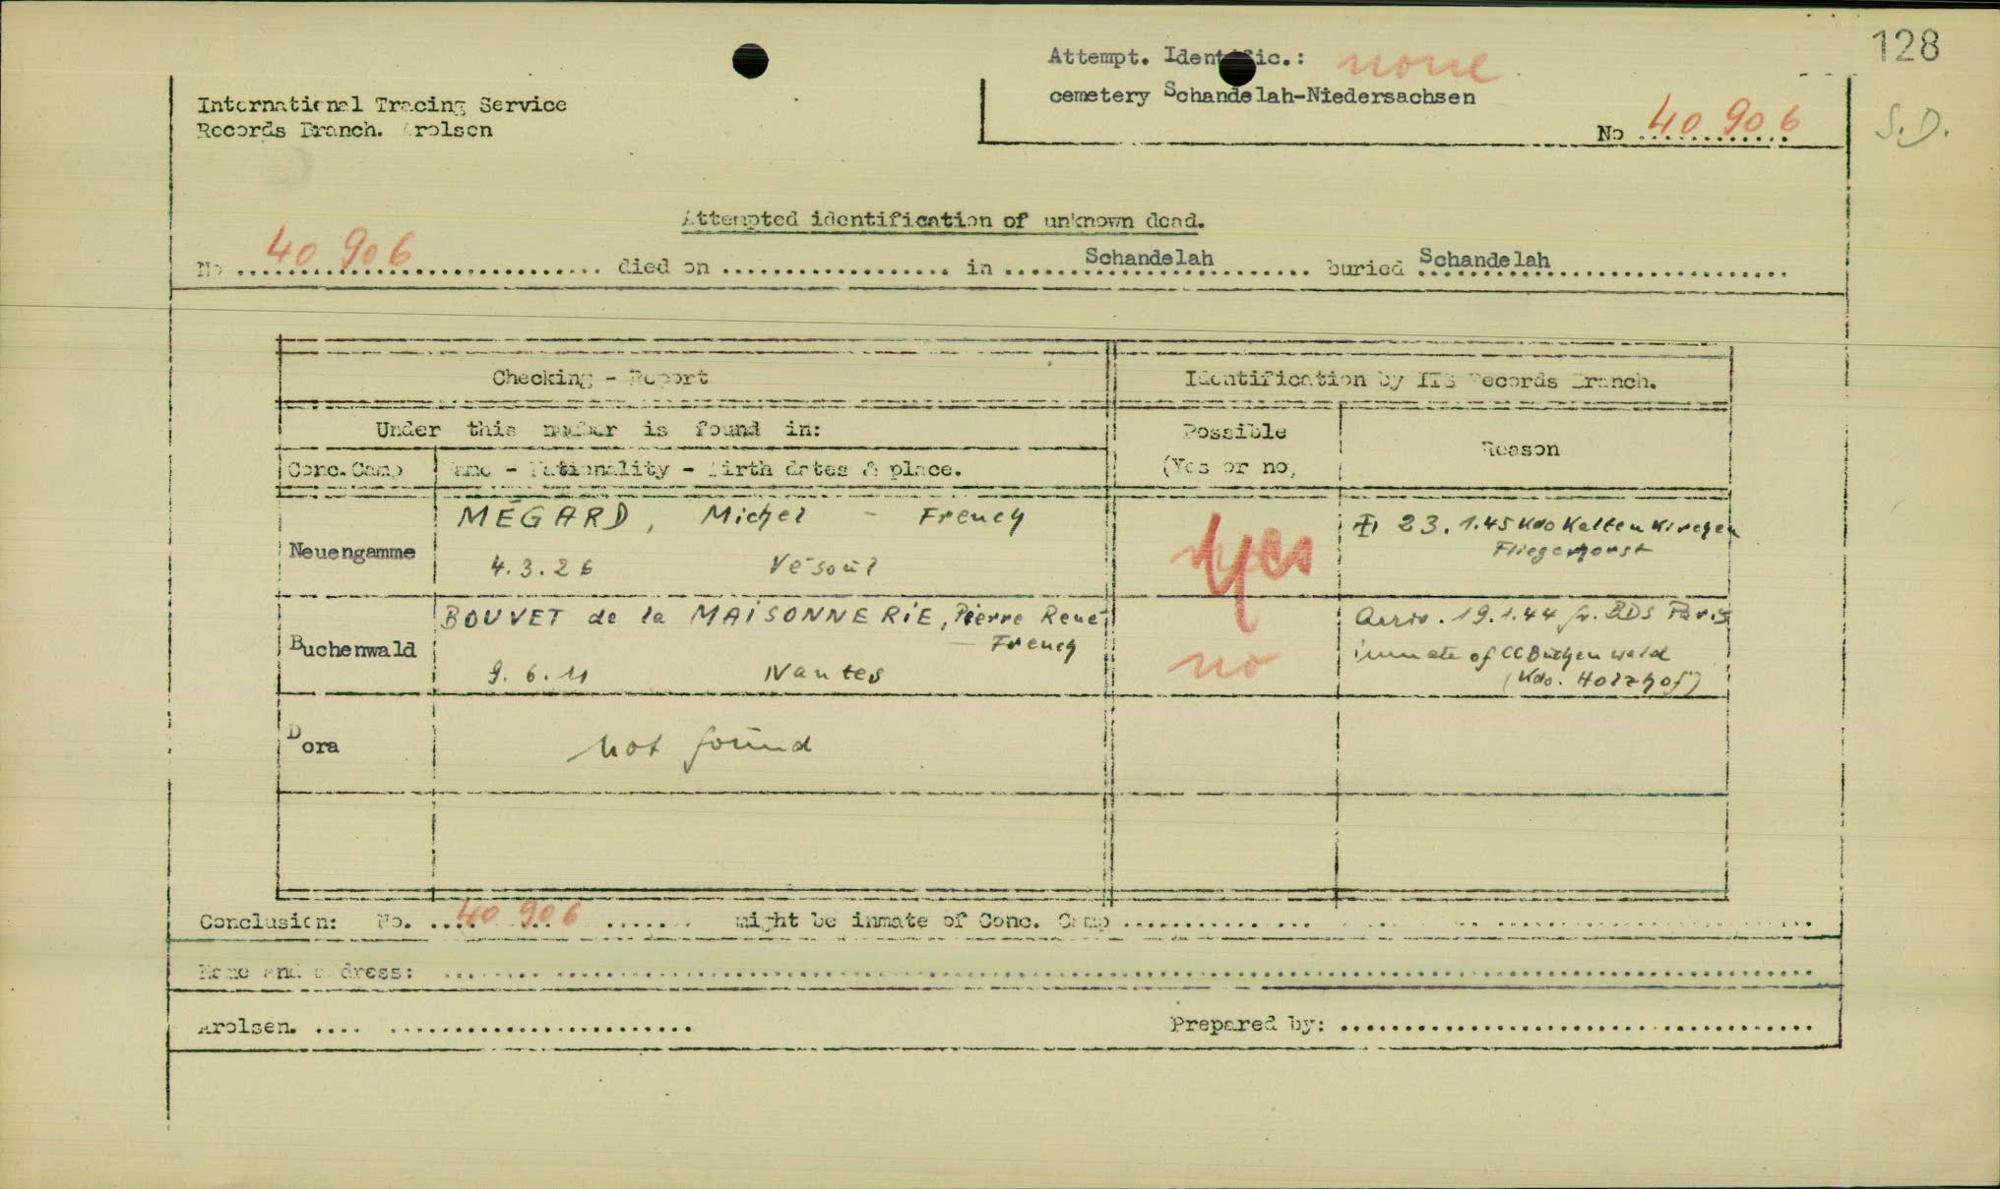 128
Attempt. Identific.: none
cemetery Schandelah-Niedersachsen
International Tracing Service
Records Branch. Arolsen
No 40 906
S.D.
Attempted identification of unknown dead.
No 40 906 died on in Schandelah buried Schandelah
Checking - Report
Identification by ITS Records Branch.
Under this number is found in:
Possible
(Yes or no,
Reason
Conc.Camp
Name - Nationality - Birth dates & place.
Neuengamme
MÉGARD, Michel - French
4.3.26 Vesoul
yes
23.1.45 Kdo Kaltenkirchen
Fliegerhorst
Buchenwald
BOUVET de la MAISONNERIE, Pierre René
- French
9.6.11 Nantes
no
Arriv. 19.1.44 fr. BDS Paris
inmate of CC Buchenwald
(Kdo. Holzhof)
Dora
not found
Conclusion: No. 40 906 might be inmate of Conc. Camp
Name and address:
Arolsen.
Prepared by: